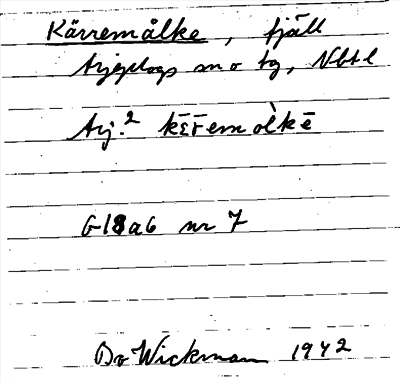 Kärremålke, fjäll
Arjeplogs sn o tg, Nbtl
Arj.² k̄ɛr̄emòlkē
G18a6 nr 7
Bo Wickman 1942